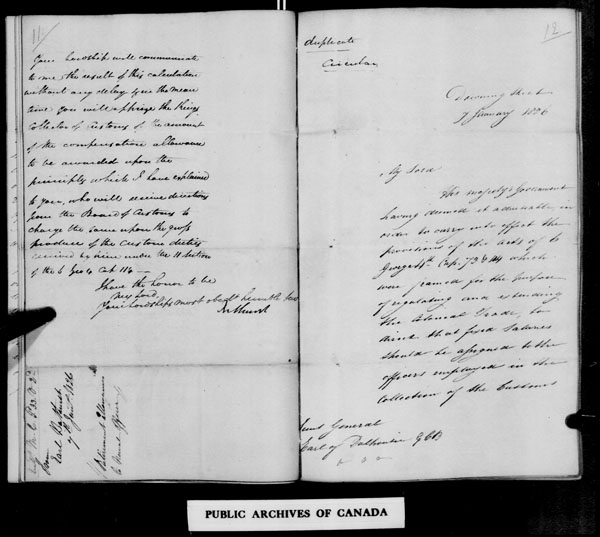 11
Your Lordship will communicate
to me the result of this calculation
without any delay & in the mean
time you will apprize the King's
Collector of Customs of the amount
of the compensation allowance
to be awarded upon the
principle which I have explained
to you, who will receive directions
from the Board of Customs to
charge the same upon the gross
produce of the Custom duties
received by him under the 11 section
of the 6 Geo 4 Cap 114 —
I have the honor to be
My Lord
Your Lordships most obedt humble Servt
Bathurst
From
Earl Bathurst
7th Jany 1826
12
duplicate
Circular
Downing Street
7 January 1826
My Lord
His Majesty's Government
having deemed it adviseable, in
order to carry into effect the
provisions of the acts of 6
George 4th Cap. 73 & 114 which
were framed for the purpose
of regulating and extending
the Colonial Trade, to
direct that fixed Salaries
should be assigned to the
officers employed in the
collection of the Customs
Lieut General
Earl of Dalhousie GCB
PUBLIC ARCHIVES OF CANADA